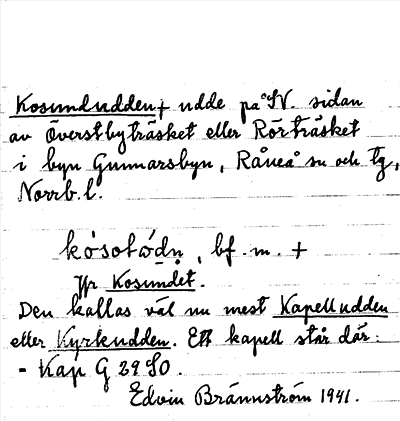 Kosundudden † udde på SV. sidan
av Överstbyträsket eller Rörträsket
i byn Gunnarsbyn, Råneå sn och tg,
Norrb. l.
bf. m. †
Jfr Kosundet.
Den kallas väl nu mest Kapelludden
eller Kyrkudden. Ett kapell står där:
- Kap G 29 SO.
Edvin Brännström 1941.